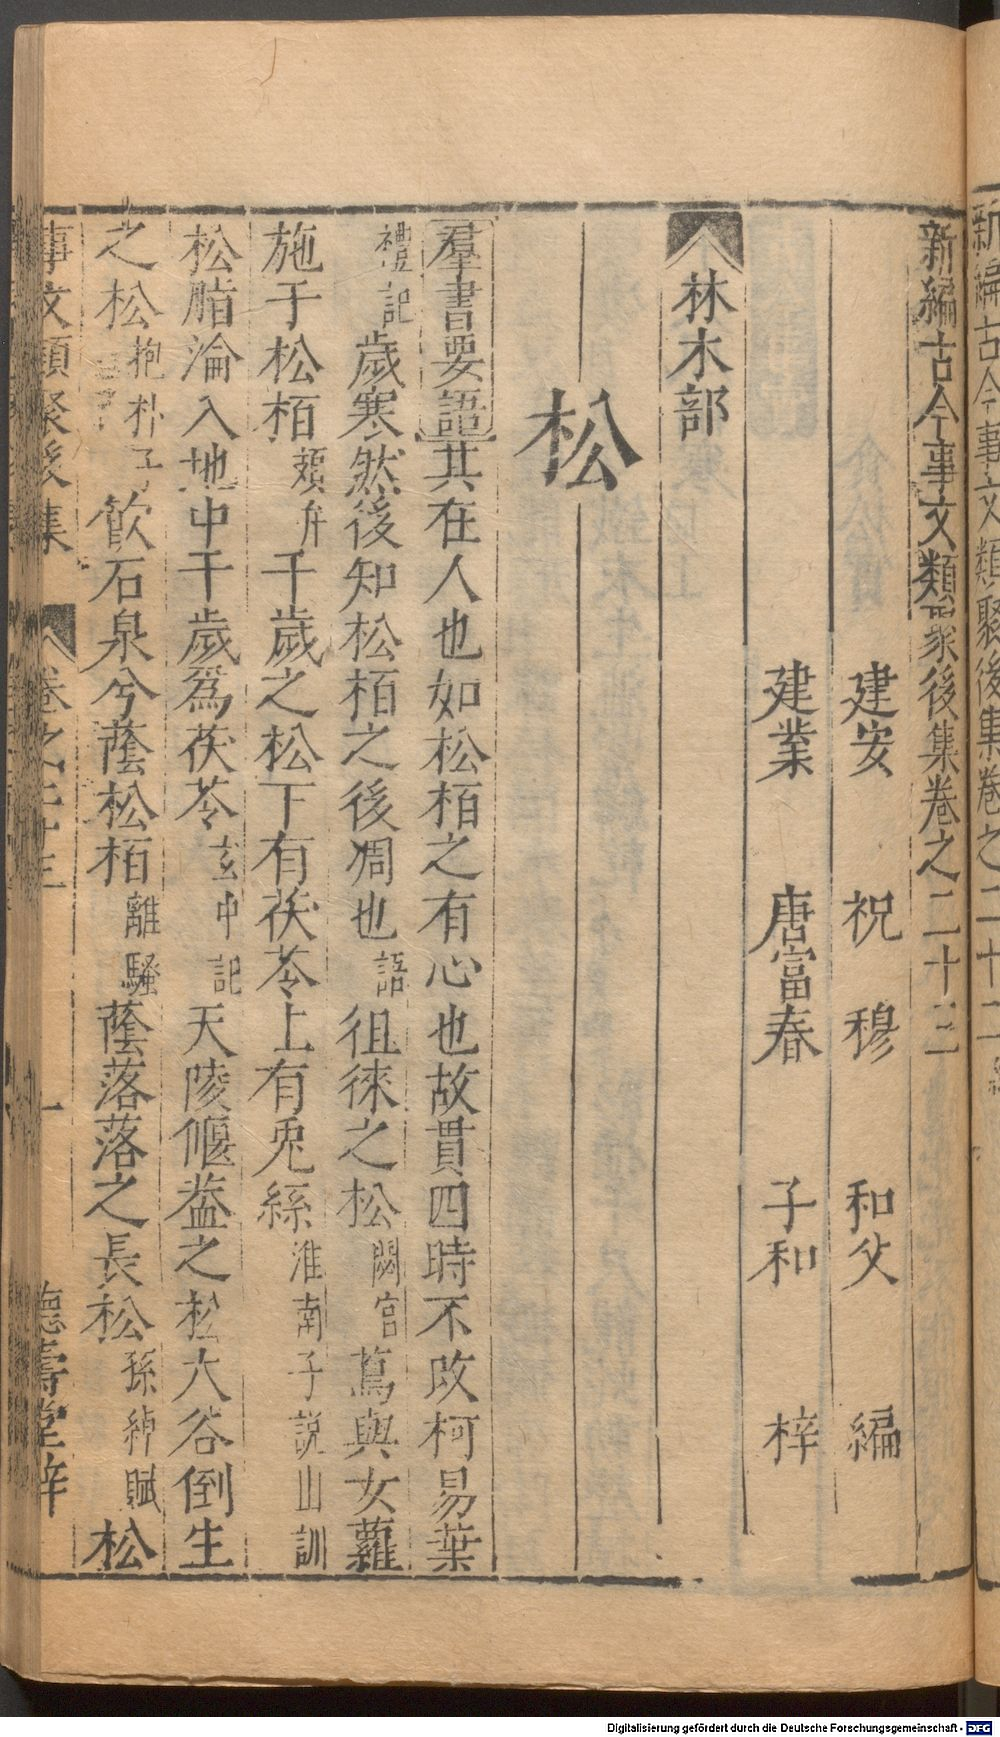 新編古今事文類聚後集卷之二十三
建安 祝 穆 和父 編
建業 唐富春 子和 梓
林木部
松
羣書要語其在人也如松栢之有心也故貫四時不改柯易葉
禮記歲寒然後知松栢之後凋也語徂徠之松閟宮蔦與女蘿
施于松栢頍弁千歲之松下有茯苓上有兎絲淮南子説山訓
松脂淪入地中千歲爲茯苓玄中記天陵偃葢之松大谷倒生
之松抱朴子飲石泉兮蔭松栢離騷蔭落落之長松孫綽賦松
事文類聚後集 卷之二十三 一 德壽堂梓
Digitalisierung gefördert durch die Deutsche Forschungsgemeinschaft - DFG